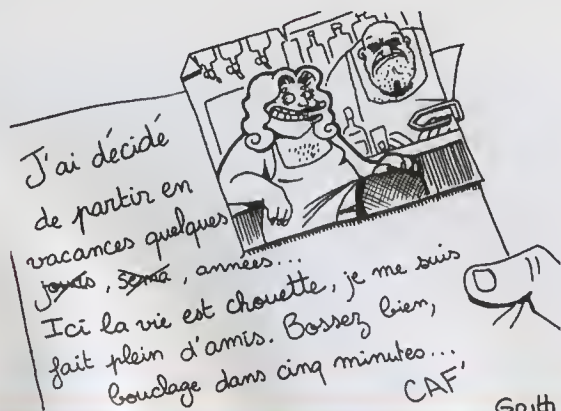 J'ai décidé
de partir en
vacances quelques
jours, sema, années...
Ici la vie est chouette, je me suis
fait plein d'amis. Bossez bien,
bouclage dans cinq minutes...
CAF'